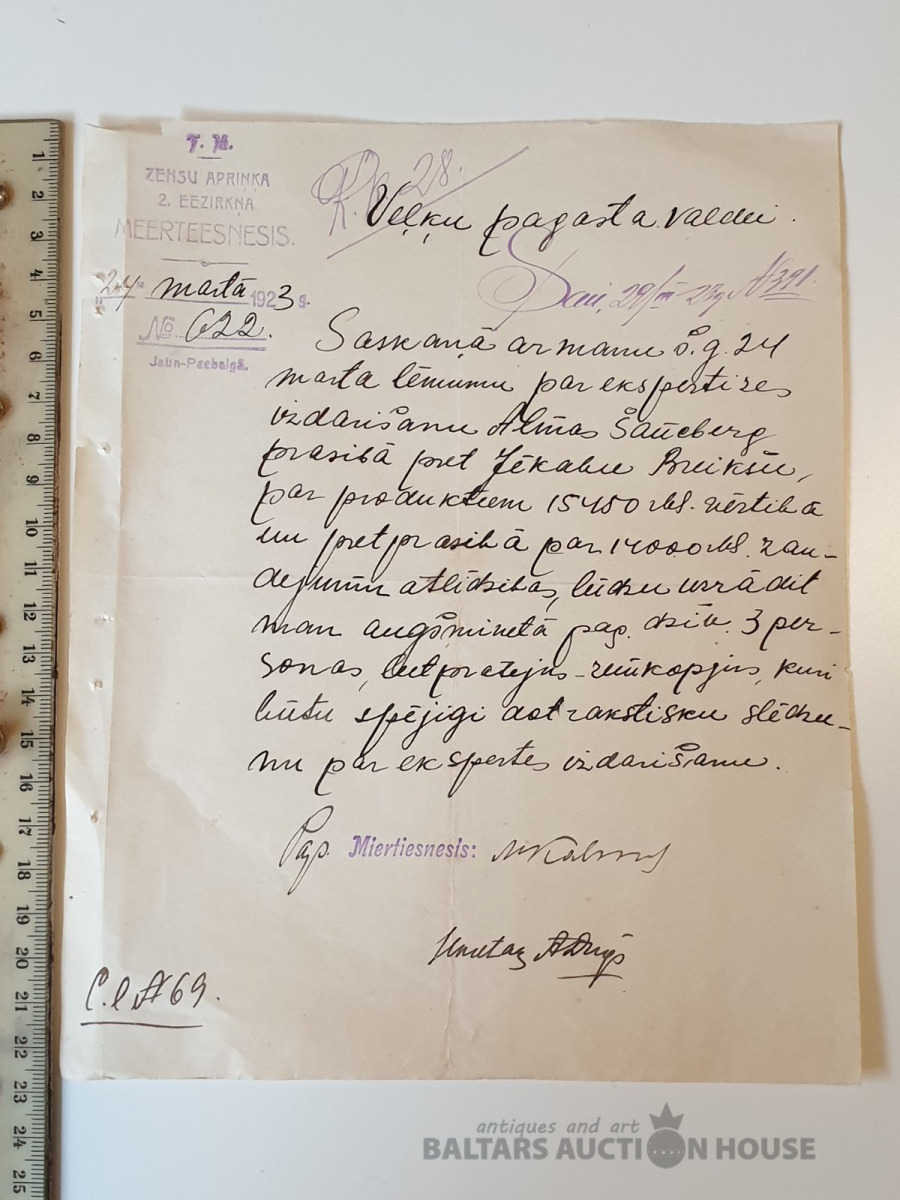 T. M.
ZENSU APRIŅĶA
2. EEZIRKŅA
MEERTEESNESIS.
24 martā 1923 g.
No 622.
Jaun-Peebalgā.
28.
Veļķu pagasta valdei.
Saņ. 29/III 23g №391.
Saskaņā ar manu š. g. 24
marta lēmumu par ekspertīzes
izdarīšanu Almas Šaneberg
prasībā pret Jēkabu Breikšu,
par produktiem 15450 rbl. vērtībā
un pretprasībā par 14000 rbl. zau-
dejumu atlīdzības, lūdzu uzrādīt
man augšminetā pag. dzīv. 3 per-
sonas, lietpratejus-zemkopjus, kuri
būtu spējīgi dot rakstisku slēdzie-
nu par ekspertes izdarīšanu.
Pag. Miertiesnesis:
C. l №69.
1
2
3
4
5
6
7
8
9
10
11
12
13
14
15
16
17
18
19
20
21
22
23
24
25
antiques and art
BALTARS AUCTION HOUSE